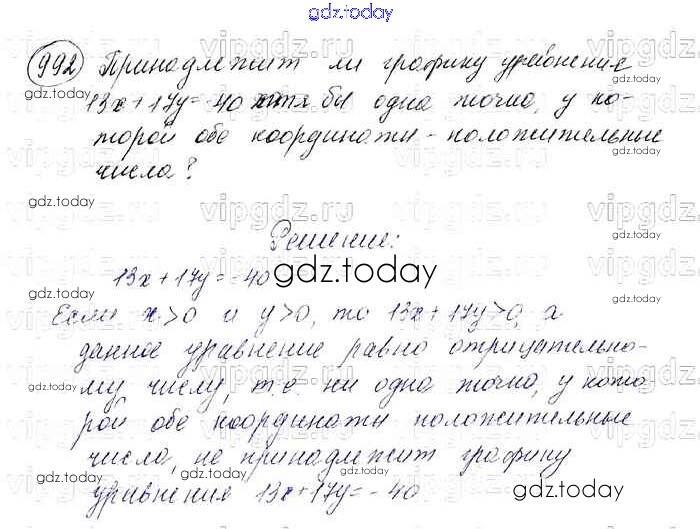 gdz.today
992 Принадлежит ли графику уравнение
13x + 17y = -40 хотя бы одна точка, у ко-
торой обе координаты - положительные
числа?
Решение:
13x + 17y = -40
Если x > 0 и y > 0, то 13x + 17y > 0, а
данное уравнение равно отрицательно-
му числу, т.е. ни одна точка, у кото-
рой обе координаты положительные
числа, не принадлежит графику
уравнения 13x + 17y = -40
gdz.today
vipgdz.ru